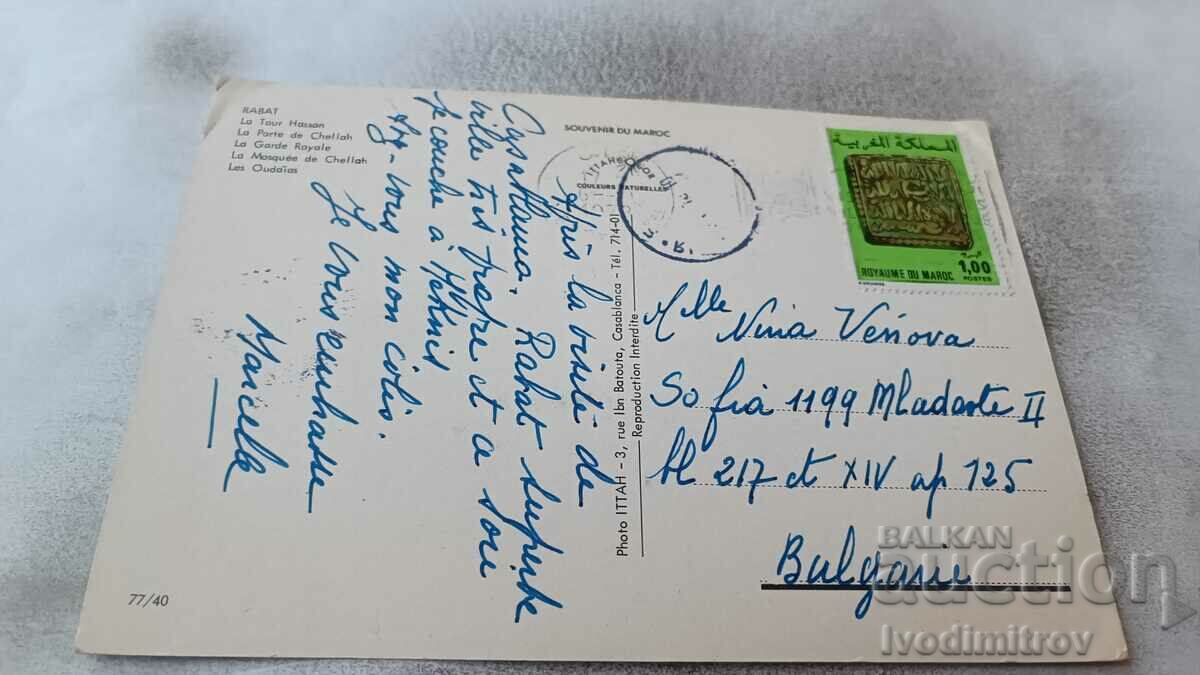 RABAT
La Tour Hassan
La Porte de Chellah
La Garde Royale
La Mosquée de Chellah
Les Oudaïas
SOUVENIR DU MAROC
ITTAH COLOR
COULEURS NATURELLES
Après la visite de
Casablanca, Rabat superbe
ville très propre et ce soir
je couche à Meknès
Avez-vous mon colis.
Je vous embrasse
Marcelle
77/40
Photo ITTAH - 3, rue Ibn Batouta, Casablanca - Tél. 714-01
Reproduction Interdite
المملكة المغربية
ROYAUME DU MAROC
1,00
POSTES
Mlle Nina
Sofia 1199 Mladoste II
bl 217 et XIV ap 125
Bulgarie
BALKAN
auction
Ivodimitrov